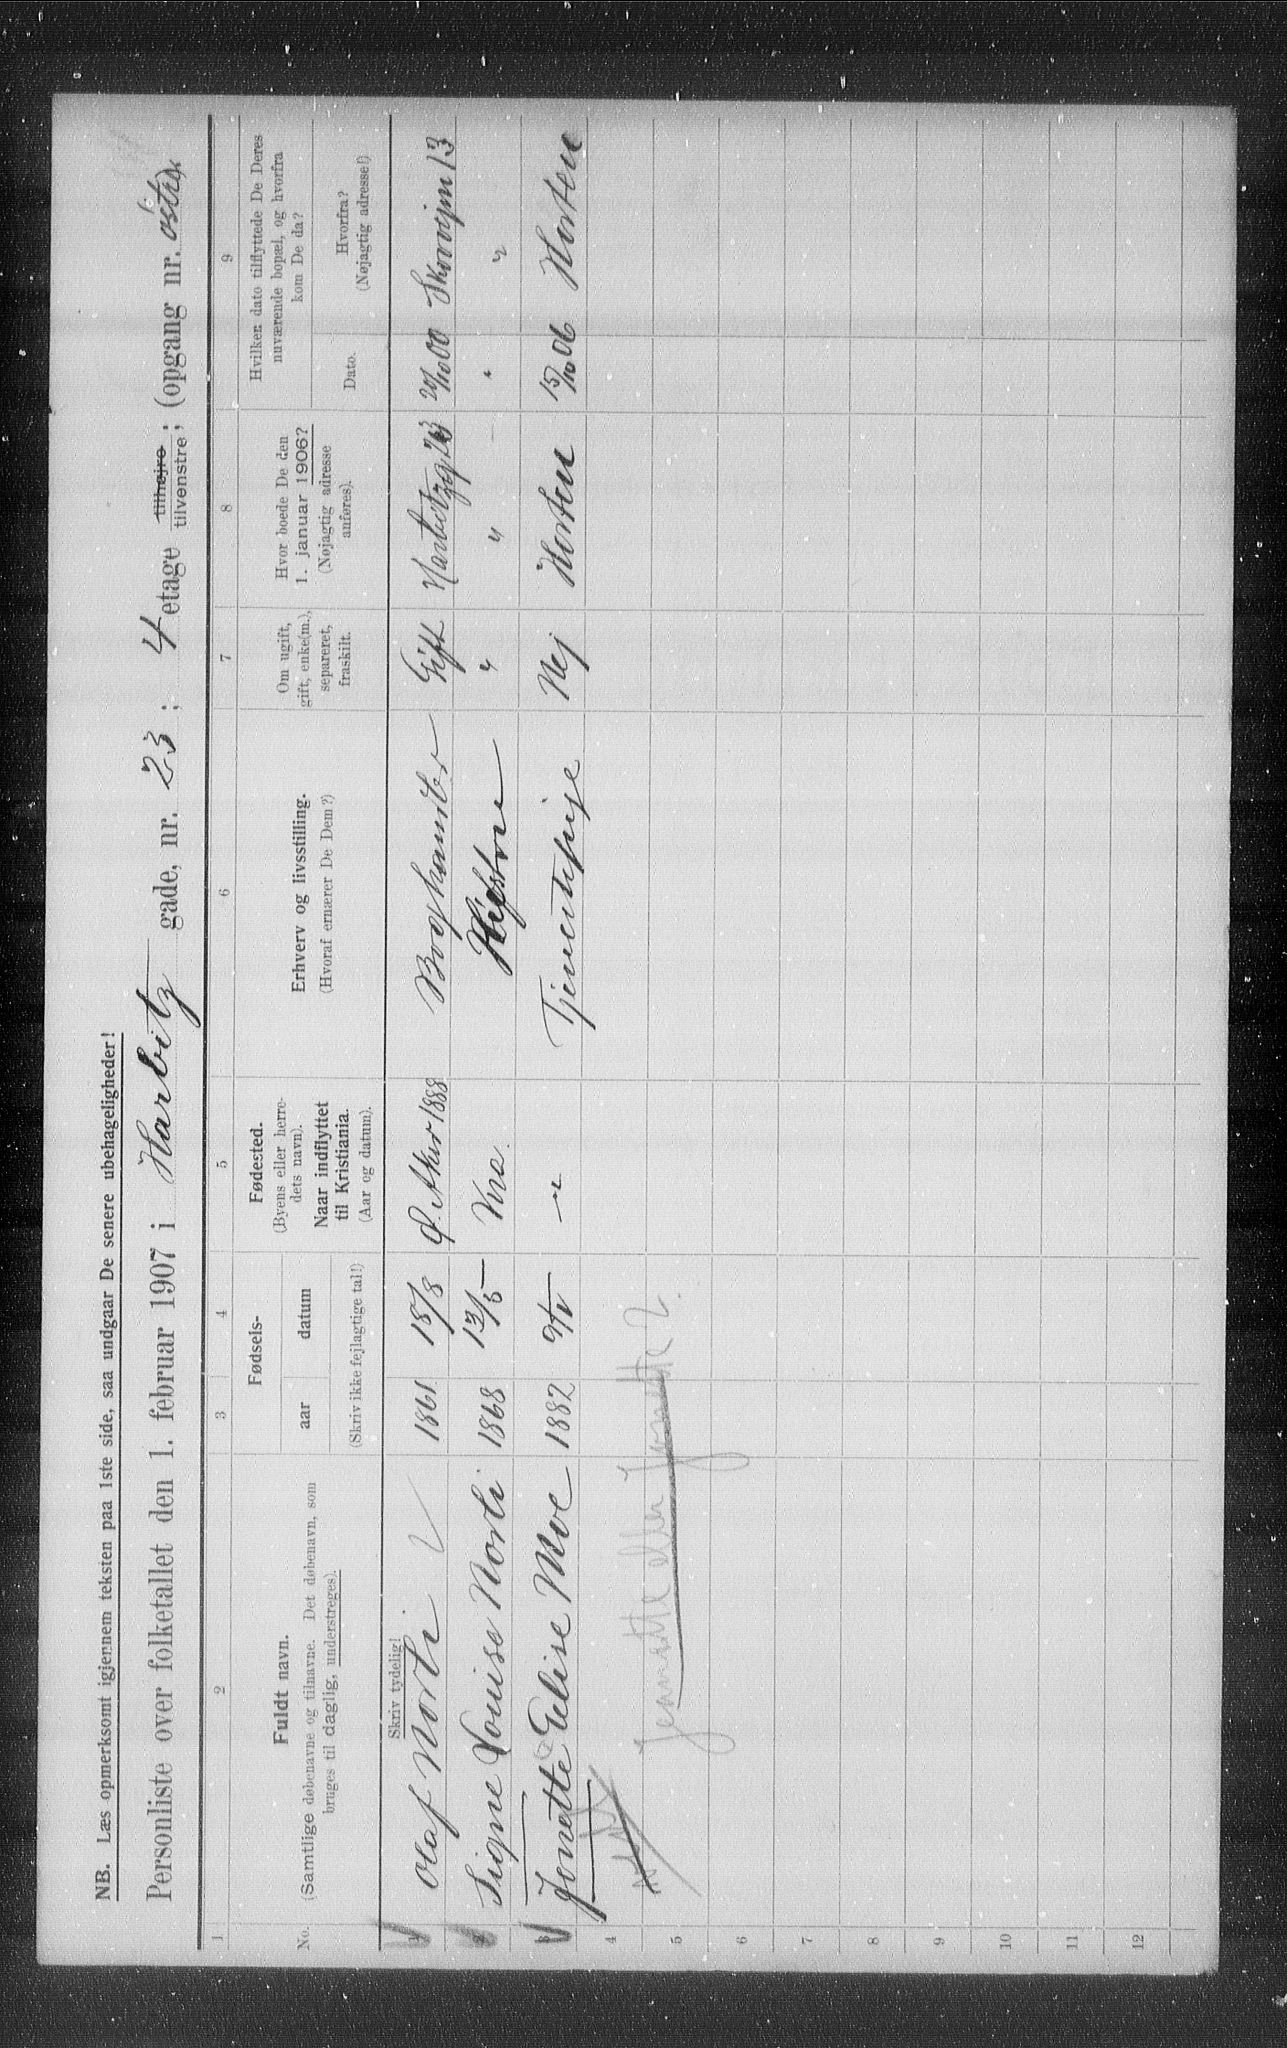 NB. Læs opmerksomt igjennem teksten paa 1ste side, saa undgaar De senere ubehageligheder!
Personliste over folketallet den 1. februar 1907 i Harbitz gade, nr. 23; 4 etage tilhøjre tilvenstre; (opgang nr.
1 2 3 4 5 6 7 8 9
No.
Fuldt navn.
(Samtlige døbenavne og tilnavne. Det døbenavn, som
bruges til daglig, understreges).
Fødsels-
aar datum
(Skriv ikke fejlagtige tal!)
Fødested.
(Byens eller herre-
dets navn).
Naar indflyttet
til Kristiania.
(Aar og datum).
Erhverv og livsstilling.
(Hvoraf ernærer De Dem?)
Om ugift,
gift, enke(m.),
separeret,
fraskilt.
Hvor boede De den
1. januar 1906?
(Nøjagtig adresse
anføres).
Hvilken dato tilflyttede De Deres
nuværende bopæl, og hvorfra
kom De da?
Dato.
Hvorfra?
(Nøjagtig adresse!)
Skriv tydelig!
1 Olaf Norli 1861 18/8 Ø. Aker 1888 Boghandler Gift Harbitzg 23 20/10 00 Skovvejen 13
2 Signe Louise Norli 1868 12/5 Kra. Hustru " " " "
3 Jonette Elise Moe 1882 9/5 " Tjenestepige Nej Horten 15/10 06 Horten
4
5 Jenette eller Jonette?
6
7
8
9
10
11
12